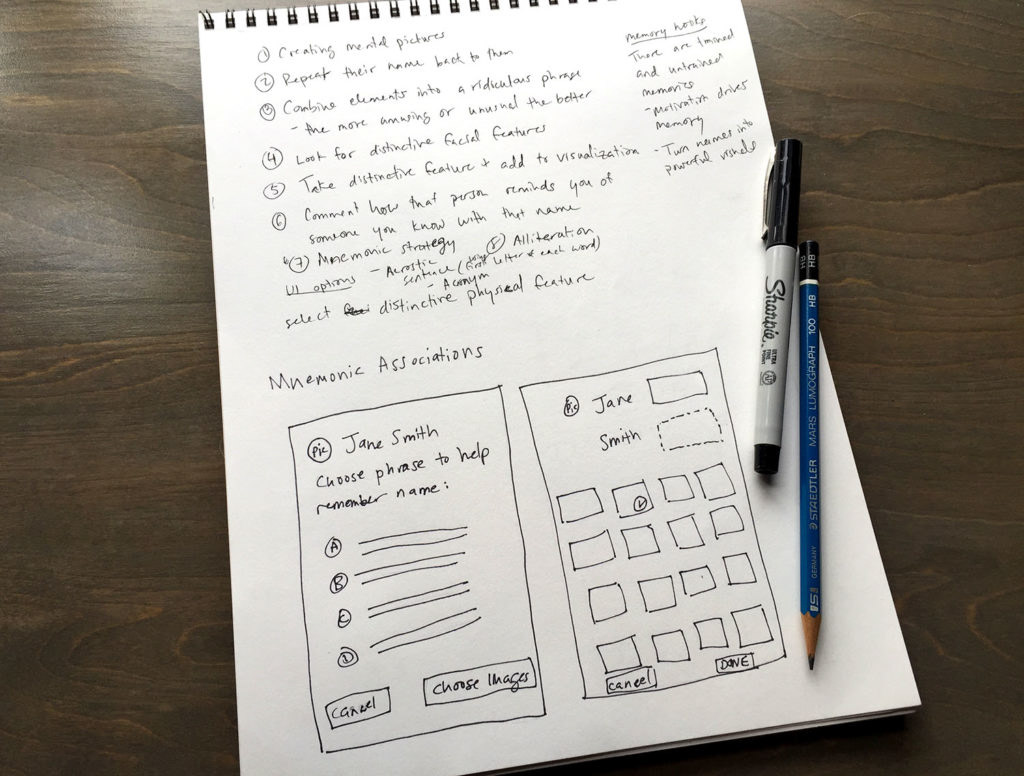 ① Creating mental pictures
② Repeat their name back to them
③ Combine elements into a ridiculous phrase
- the more amusing or unusual the better
④ Look for distinctive facial features
⑤ Take distinctive feature + add to visualization
⑥ Comment how that person reminds you of
someone you know with that name
⑦ Mnemonic strategy ⑧ Alliteration
- Acrostic
sentence (using first letter of each word)
- Acronym
UI options
select distinctive physical feature
memory hooks
There are trained
and untrained
memories
- Motivation drives
memory
- Turn names into
powerful visuals
Mnemonic Associations
Pic Jane Smith
Choose phrase to help
remember name:
A
B
C
D
Cancel
Choose Images
Pic Jane
Smith
Cancel
DONE
Sharpie
ULTRA FINE POINT
AP
HB
HB
STAEDTLER MARS LUMOGRAPH 100 HB
GERMANY